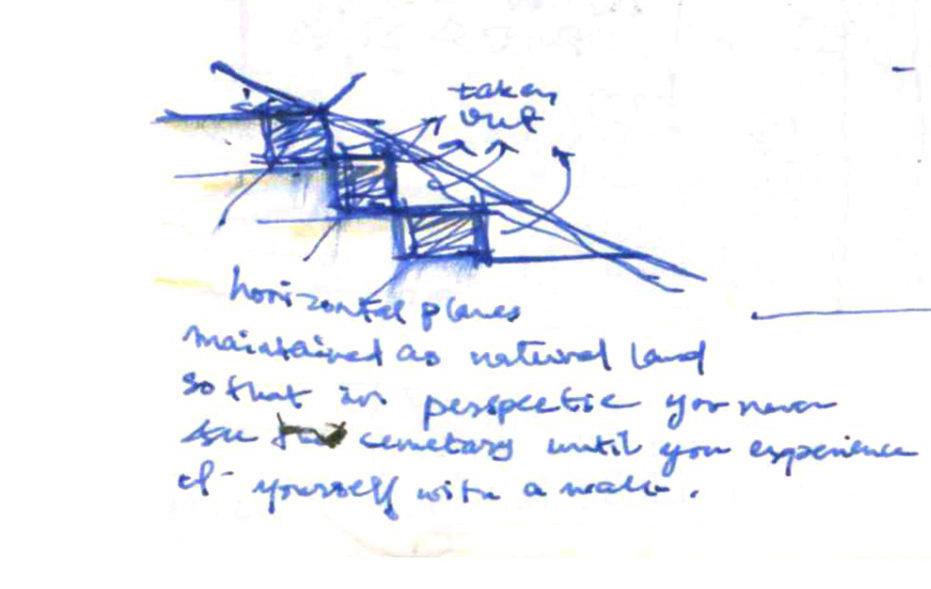 taken
out
horizontal planes
maintained as natural land
so that in perspective you never
see the cemetary until you experience
it yourself with a walk.